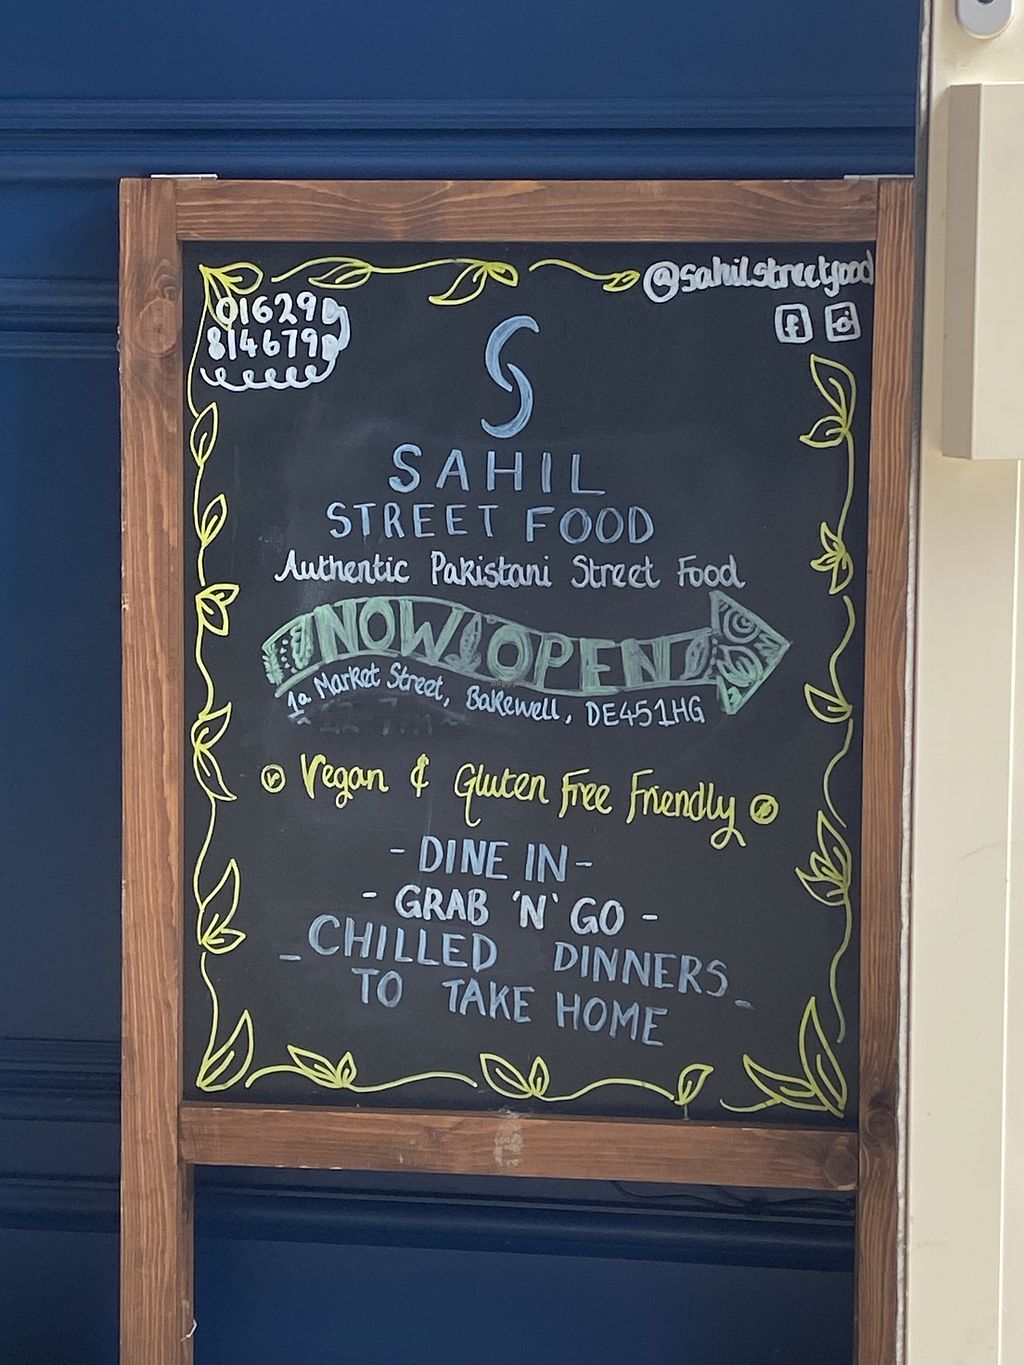 01629
814679
@sahilstreetfood
S
SAHIL
STREET FOOD
Authentic Pakistani Street Food
NOW OPEN
1a Market Street, Bakewell, DE451HG
Vegan & Gluten Free Friendly
- DINE IN -
- GRAB 'N' GO -
- CHILLED DINNERS -
TO TAKE HOME